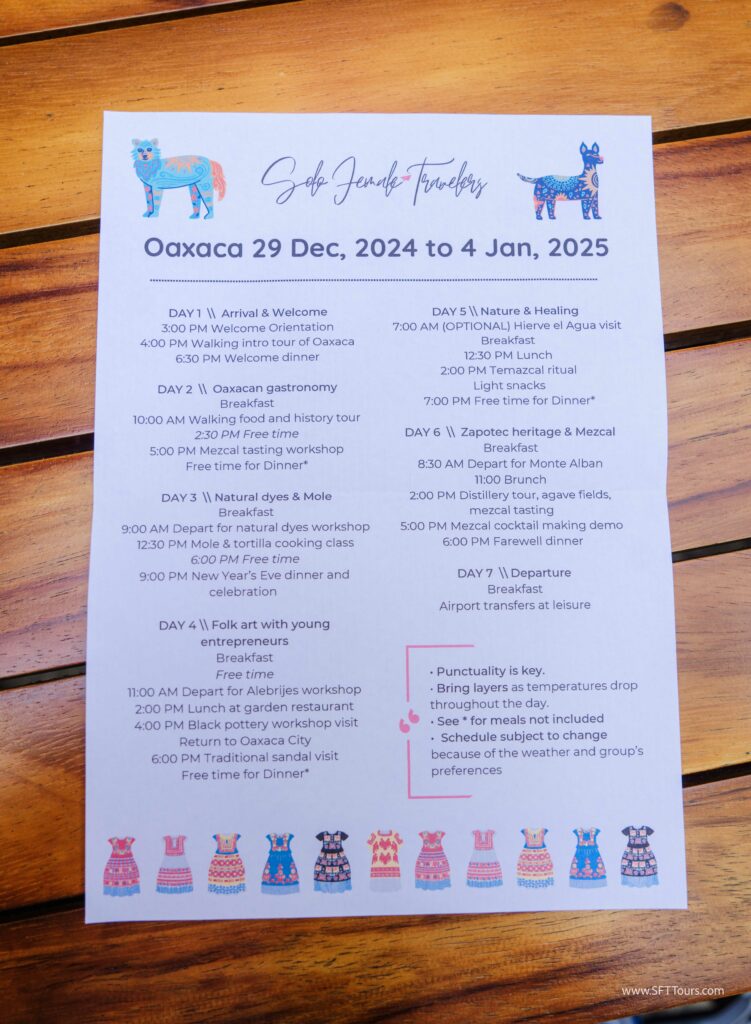 Solo Female Travelers
Oaxaca 29 Dec, 2024 to 4 Jan, 2025
DAY 1 \\ Arrival & Welcome
3:00 PM Welcome Orientation
4:00 PM Walking intro tour of Oaxaca
6:30 PM Welcome dinner
DAY 2 \\ Oaxacan gastronomy
Breakfast
10:00 AM Walking food and history tour
2:30 PM Free time
5:00 PM Mezcal tasting workshop
Free time for Dinner*
DAY 3 \\ Natural dyes & Mole
Breakfast
9:00 AM Depart for natural dyes workshop
12:30 PM Mole & tortilla cooking class
6:00 PM Free time
9:00 PM New Year's Eve dinner and
celebration
DAY 4 \\ Folk art with young
entrepreneurs
Breakfast
Free time
11:00 AM Depart for Alebrijes workshop
2:00 PM Lunch at garden restaurant
4:00 PM Black pottery workshop visit
Return to Oaxaca City
6:00 PM Traditional sandal visit
Free time for Dinner*
DAY 5 \\ Nature & Healing
7:00 AM (OPTIONAL) Hierve el Agua visit
Breakfast
12:30 PM Lunch
2:00 PM Temazcal ritual
Light snacks
7:00 PM Free time for Dinner*
DAY 6 \\ Zapotec heritage & Mezcal
Breakfast
8:30 AM Depart for Monte Alban
11:00 Brunch
2:00 PM Distillery tour, agave fields,
mezcal tasting
5:00 PM Mezcal cocktail making demo
6:00 PM Farewell dinner
DAY 7 \\ Departure
Breakfast
Airport transfers at leisure
• Punctuality is key.
• Bring layers as temperatures drop
throughout the day.
• See * for meals not included
• Schedule subject to change
because of the weather and group's
preferences
www.SFTTours.com